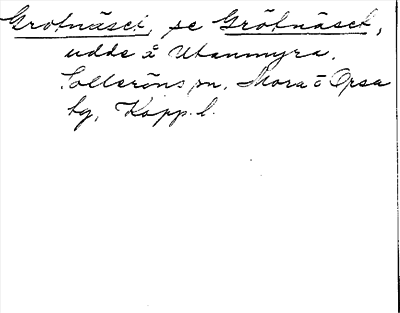 Grotnäset, se Grötnäset,
udde å Utanmyra,
Solleröns sn, Mora o Orsa
tg, Kopp. l.